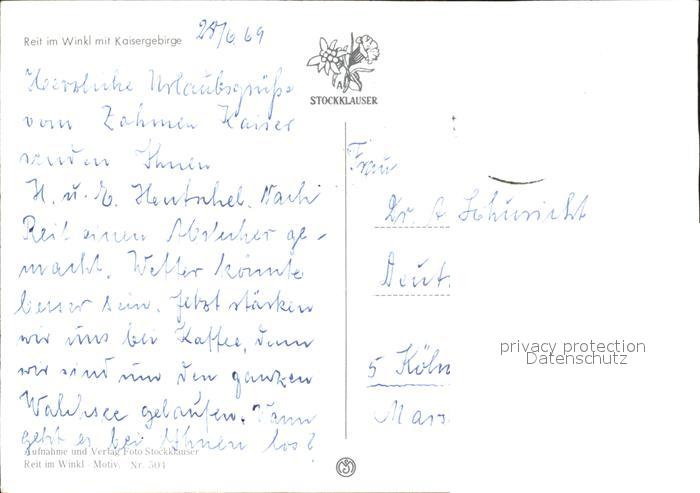 Reit im Winkl mit Kaisergebirge
28/6 69
Herzliche Urlaubsgrüße
vom Zahmen Kaiser
senden Ihnen
H. u. E. Hentschel. Nach
Reit einen Abstecher ge-
macht. Wetter könnte
besser sein. Jetzt stärken
wir uns bei Kaffee, denn
wir sind um den ganzen
Walchsee gelaufen. Wann
geht es bei Ihnen los?
Aufnahme und Verlag Foto Stockklauser
Reit im Winkl - Motiv. Nr. 504
STOCKKLAUSER
Frau
Dr. A Schuricht
Deut
5 Köln
Mars
privacy protection
Datenschutz